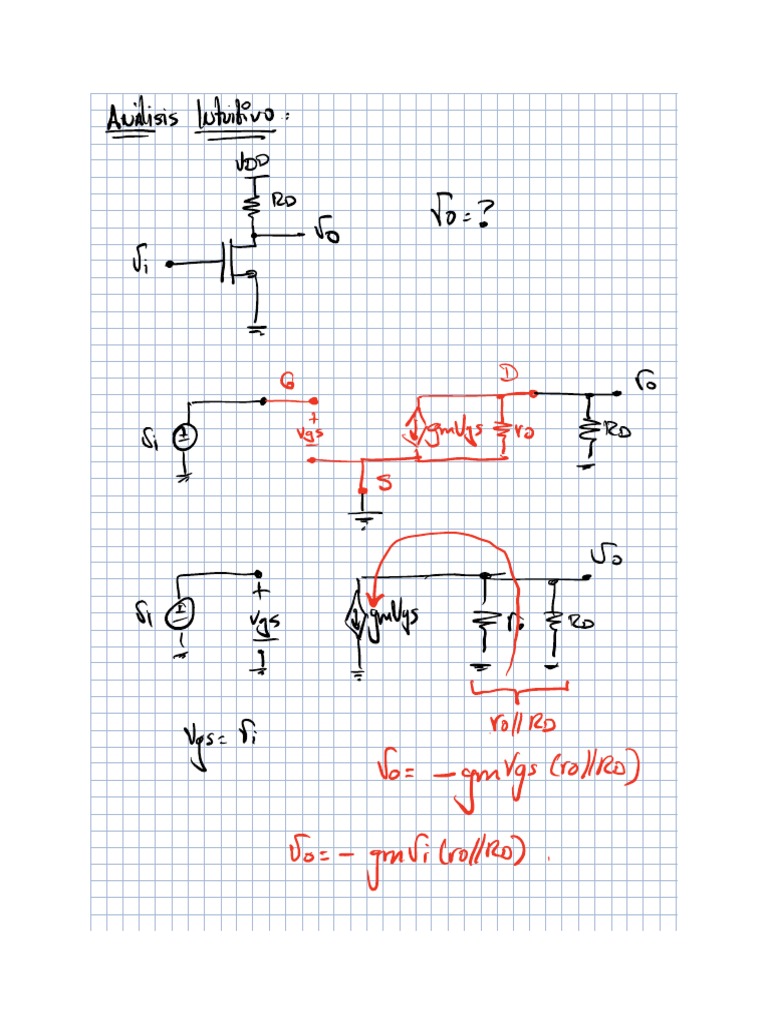 Análisis Intuitivo:
VDD
RD
vo
vi
vo=?
G
D
vo
+
vgs
-
vi
gmvgs
ro
RD
S
vo
vi
+
vgs
-
gmvgs
ro
RD
ro//RD
vgs = vi
vo = -gmvgs (ro//RD)
vo = - gmvi (ro//RD).